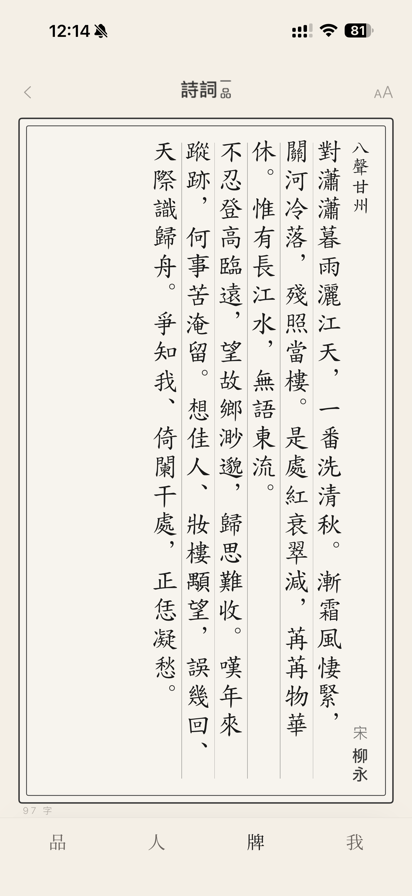 12:14
81
詩詞一品
AA
八聲甘州
宋 柳永
對瀟瀟暮雨灑江天,一番洗清秋。漸霜風悽緊,
關河冷落,殘照當樓。是處紅衰翠減,苒苒物華
休。惟有長江水,無語東流。
不忍登高臨遠,望故鄉渺邈,歸思難收。嘆年來
蹤跡,何事苦淹留。想佳人、妝樓顒望,誤幾回、
天際識歸舟。爭知我、倚闌干處,正恁凝愁。
97 字
品
人
牌
我